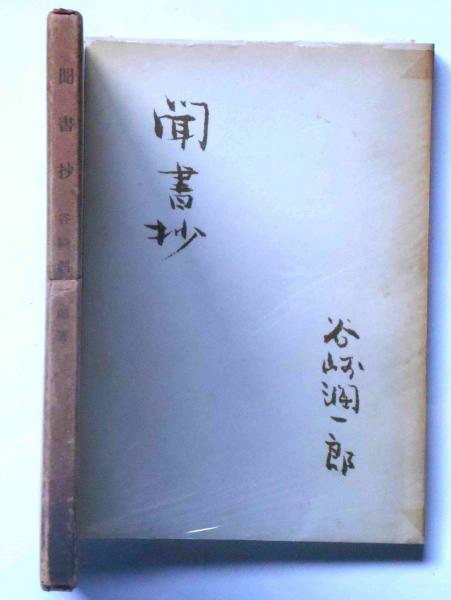 聞書抄
谷崎潤一郎
聞書抄 谷崎潤一郎著